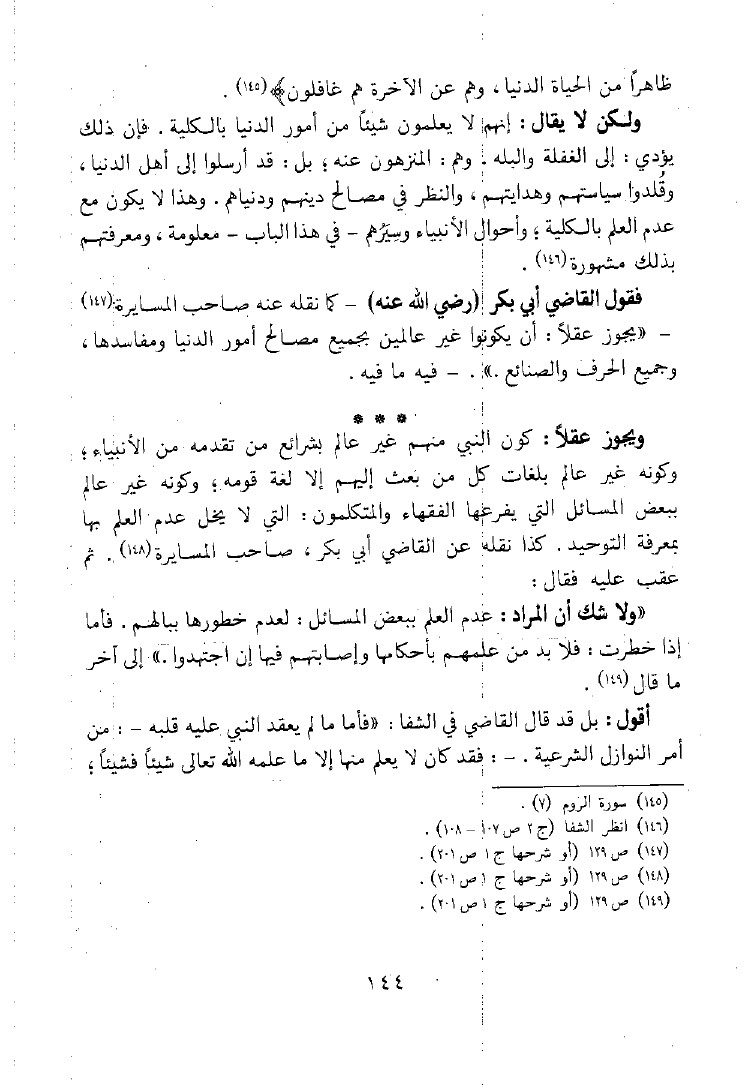 ظاهراً من الحياة الدنيا ، وهم عن الآخرة هم غافلون﴾(١٤٥) .
ولكن لا يقال : إنهم لا يعلمون شيئاً من أمور الدنيا بالكلية . فإن ذلك
يؤدي : إلى الغفلة والبله . وهم : المنزهون عنه ؛ بل : قد أرسلوا إلى أهل الدنيا ،
وقُلدوا سياستهم وهدايتهم ، والنظر في مصالح دينهم ودنياهم . وهذا لا يكون مع
عدم العلم بالكلية ؛ وأحوال الأنبياء وسِيَرُهم – في هذا الباب – معلومة ، ومعرفتهم
بذلك مشهورة(١٤٦) .
فقول القاضي أبي بكر (رضي الله عنه) – كما نقله عنه صاحب المسايرة(١٤٧)
– «يجوز عقلاً : أن يكونوا غير عالمين بجميع مصالح أمور الدنيا ومفاسدها ،
وجميع الحرف والصنائع .» . – فيه ما فيه .
* * *
ويجوز عقلاً : كون النبي منهم غير عالم بشرائع من تقدمه من الأنبياء ؛
وكونه غير عالم بلغات كل من بعث إليهم إلا لغة قومه ؛ وكونه غير عالم
ببعض المسائل التي يفرعها الفقهاء والمتكلمون : التي لا يخل عدم العلم بها
بمعرفة التوحيد . كذا نقله عن القاضي أبي بكر ، صاحب المسايرة(١٤٨) . ثم
عقب عليه فقال :
«ولا شك أن المراد : عدم العلم ببعض المسائل : لعدم خطورها ببالهم . فأما
إذا خطرت : فلا بد من علمهم بأحكامها وإصابتهم فيها إن اجتهدوا .» إلى آخر
ما قال(١٤٩) .
أقول : بل قد قال القاضي في الشفا : «فأما ما لم يعقد النبي عليه قلبه – : من
أمر النوازل الشرعية . – : فقد كان لا يعلم منها إلا ما علمه الله تعالى شيئاً فشيئاً ؛
(١٤٥) سورة الروم (٧) .
(١٤٦) انظر الشفا (ج ٢ ص ١٠٧ – ١٠٨) .
(١٤٧) ص ١٢٩ (أو شرحها ج ١ ص ٢٠١) .
(١٤٨) ص ١٢٩ (أو شرحها ج ١ ص ٢٠١) .
(١٤٩) ص ١٢٩ (أو شرحها ج ١ ص ٢٠١) .
١٤٤